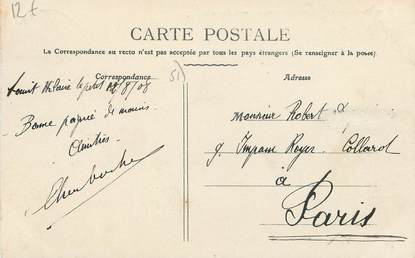 12 f
CARTE POSTALE
La Correspondance au recto n'est pas acceptée par tous les pays étrangers (Se renseigner à la poste)
Correspondance
51)
Adresse
Saint Hilaire le petit 8/08
Bonne poignée de mains
Monsieur Robert
9. Impasse Royer-Collard
à
Paris